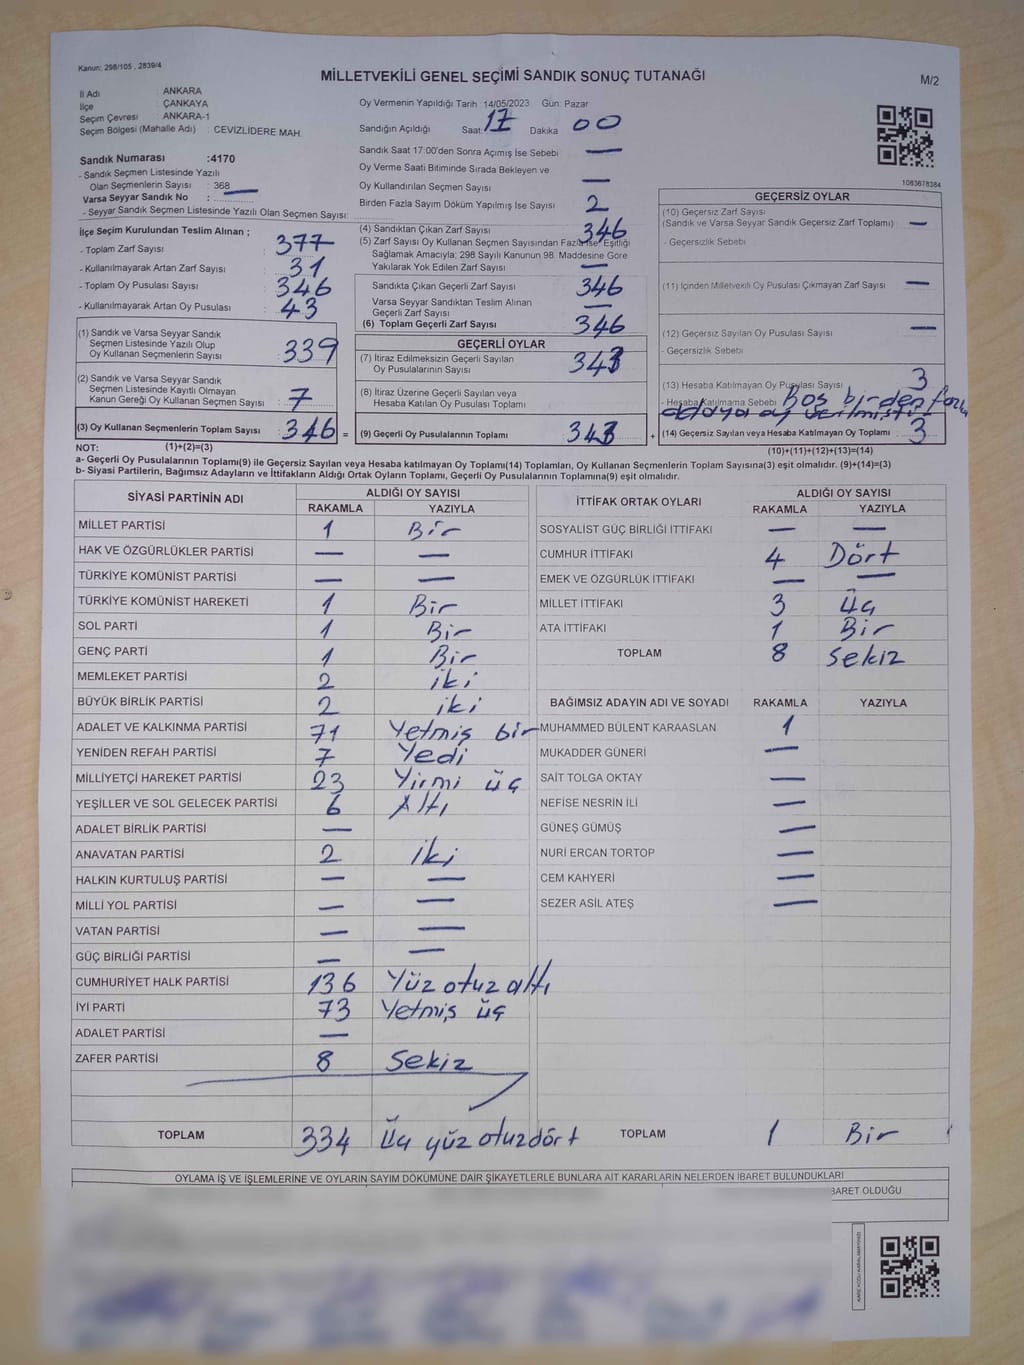 Kanun: 298/105 , 2839/4
MİLLETVEKİLİ GENEL SEÇİMİ SANDIK SONUÇ TUTANAĞI
M/2
İl Adı : ANKARA
İlçe : ÇANKAYA
Seçim Çevresi : ANKARA-1
Seçim Bölgesi (Mahalle Adı) : CEVİZLİDERE MAH.
Oy Vermenin Yapıldığı Tarih 14/05/2023 Gün: Pazar
Sandığın Açıldığı Saat 17 Dakika 00
Sandık Saat 17:00'den Sonra Açımış İse Sebebi —
Oy Verme Saati Bitiminde Sırada Bekleyen ve
Oy Kullandırılan Seçmen Sayısı —
Birden Fazla Sayım Döküm Yapılmış İse Sayısı 2
Sandık Numarası :4170
- Sandık Seçmen Listesinde Yazılı
Olan Seçmenlerin Sayısı : 368
Varsa Seyyar Sandık No : —
- Seyyar Sandık Seçmen Listesinde Yazılı Olan Seçmen Sayısı:
1083678384
İlçe Seçim Kurulundan Teslim Alınan ;
- Toplam Zarf Sayısı : 377
- Kullanılmayarak Artan Zarf Sayısı : 31
- Toplam Oy Pusulası Sayısı : 346
- Kullanılmayarak Artan Oy Pusulası : 43
(1) Sandık ve Varsa Seyyar Sandık
Seçmen Listesinde Yazılı Olup
Oy Kullanan Seçmenlerin Sayısı : 339
(2) Sandık ve Varsa Seyyar Sandık
Seçmen Listesinde Kayıtlı Olmayan
Kanun Gereği Oy Kullanan Seçmen Sayısı : 7
(3) Oy Kullanan Seçmenlerin Toplam Sayısı : 346 =
(4) Sandıktan Çıkan Zarf Sayısı 346
(5) Zarf Sayısı Oy Kullanan Seçmen Sayısından Fazla İse, Eşitliği
Sağlamak Amacıyla; 298 Sayılı Kanunun 98. Maddesine Göre
Yakılarak Yok Edilen Zarf Sayısı —
Sandıkta Çıkan Geçerli Zarf Sayısı 346
Varsa Seyyar Sandıktan Teslim Alınan
Geçerli Zarf Sayısı —
(6) Toplam Geçerli Zarf Sayısı 346
GEÇERLİ OYLAR
(7) İtiraz Edilmeksizin Geçerli Sayılan
Oy Pusulalarının Sayısı 343
(8) İtiraz Üzerine Geçerli Sayılan veya
Hesaba Katılan Oy Pusulası Toplamı
(9) Geçerli Oy Pusulalarının Toplamı 343 +
GEÇERSİZ OYLAR
(10) Geçersiz Zarf Sayısı
(Sandık ve Varsa Seyyar Sandık Geçersiz Zarf Toplamı) —
- Geçersizlik Sebebi
(11) İçinden Milletvekili Oy Pusulası Çıkmayan Zarf Sayısı —
(12) Geçersiz Sayılan Oy Pusulası Sayısı —
- Geçersizlik Sebebi
(13) Hesaba Katılmayan Oy Pusulası Sayısı 3
- Hesaba Katılmama Sebebi Boş birden fazla
adaya oy verilmiştir
(14) Geçersiz Sayılan veya Hesaba Katılmayan Oy Toplamı 3
NOT: (1)+(2)=(3) (10)+(11)+(12)+(13)=(14)
a- Geçerli Oy Pusulalarının Toplamı(9) ile Geçersiz Sayılan veya Hesaba katılmayan Oy Toplamı(14) Toplamları, Oy Kullanan Seçmenlerin Toplam Sayısına(3) eşit olmalıdır. (9)+(14)=(3)
b- Siyasi Partilerin, Bağımsız Adayların ve İttifakların Aldığı Ortak Oyların Toplamı, Geçerli Oy Pusulalarının Toplamına(9) eşit olmalıdır.
SİYASİ PARTİNİN ADI ALDIĞI OY SAYISI
RAKAMLA YAZIYLA
MİLLET PARTİSİ 1 Bir
HAK VE ÖZGÜRLÜKLER PARTİSİ — —
TÜRKİYE KOMÜNİST PARTİSİ — —
TÜRKİYE KOMÜNİST HAREKETİ 1 Bir
SOL PARTİ 1 Bir
GENÇ PARTİ 1 Bir
MEMLEKET PARTİSİ 2 iki
BÜYÜK BİRLİK PARTİSİ 2 iki
ADALET VE KALKINMA PARTİSİ 71 Yetmiş bir
YENİDEN REFAH PARTİSİ 7 Yedi
MİLLİYETÇİ HAREKET PARTİSİ 23 Yirmi üç
YEŞİLLER VE SOL GELECEK PARTİSİ 6 Altı
ADALET BİRLİK PARTİSİ —
ANAVATAN PARTİSİ 2 iki
HALKIN KURTULUŞ PARTİSİ — —
MİLLİ YOL PARTİSİ — —
VATAN PARTİSİ — —
GÜÇ BİRLİĞİ PARTİSİ — —
CUMHURİYET HALK PARTİSİ 136 Yüz otuz altı
İYİ PARTİ 73 Yetmiş üç
ADALET PARTİSİ —
ZAFER PARTİSİ 8 Sekiz
TOPLAM 334 Üç yüz otuzdört
İTTİFAK ORTAK OYLARI ALDIĞI OY SAYISI
RAKAMLA YAZIYLA
SOSYALİST GÜÇ BİRLİĞİ İTTİFAKI — —
CUMHUR İTTİFAKI 4 Dört
EMEK VE ÖZGÜRLÜK İTTİFAKI — —
MİLLET İTTİFAKI 3 Üç
ATA İTTİFAKI 1 Bir
TOPLAM 8 Sekiz
BAĞIMSIZ ADAYIN ADI VE SOYADI RAKAMLA YAZIYLA
MUHAMMED BÜLENT KARAASLAN 1
MUKADDER GÜNERİ —
SAİT TOLGA OKTAY —
NEFİSE NESRİN İLİ —
GÜNEŞ GÜMÜŞ —
NURİ ERCAN TORTOP —
CEM KAHYERİ —
SEZER ASİL ATEŞ —
TOPLAM 1 Bir
OYLAMA İŞ VE İŞLEMLERİNE VE OYLARIN SAYIM DÖKÜMÜNE DAİR ŞİKAYETLERLE BUNLARA AİT KARARLARIN NELERDEN İBARET BULUNDUKLARI
BARET OLDUĞU
KARE KODU KARALAMAYINIZ!